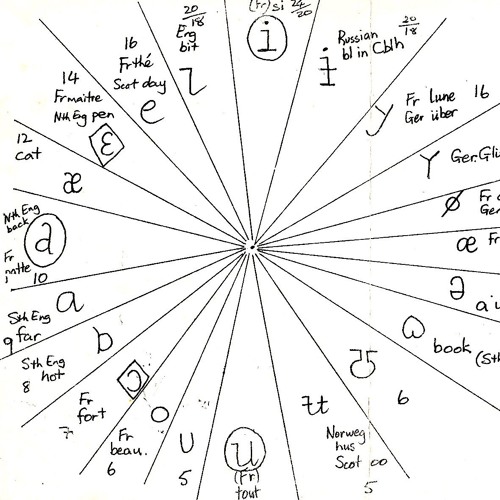 (Fr) si 24/20
i
20/18
Eng
bit
ɩ
Russian
bl in Cblh
20/18
ɨ
16
Fr thé
Scot day
e
y
Fr lune 16
Ger über
14
Fr maitre
Nth Eng pen
ɛ
Y
Ger. Glü
12
cat
æ
ø
Fr
Ger
Nth Eng
back
a
Fr
10
œ Fr
ə
a
Sth Eng
9 far
ɑ
book
(Sth
Sth Eng
8 hot
ɒ
6
Fr
fort
7
ɔ
o
Fr
beau.
6
ʊ
5
u
(Fr)
tout
ʉ
Norweg
hus
Scot oo
5